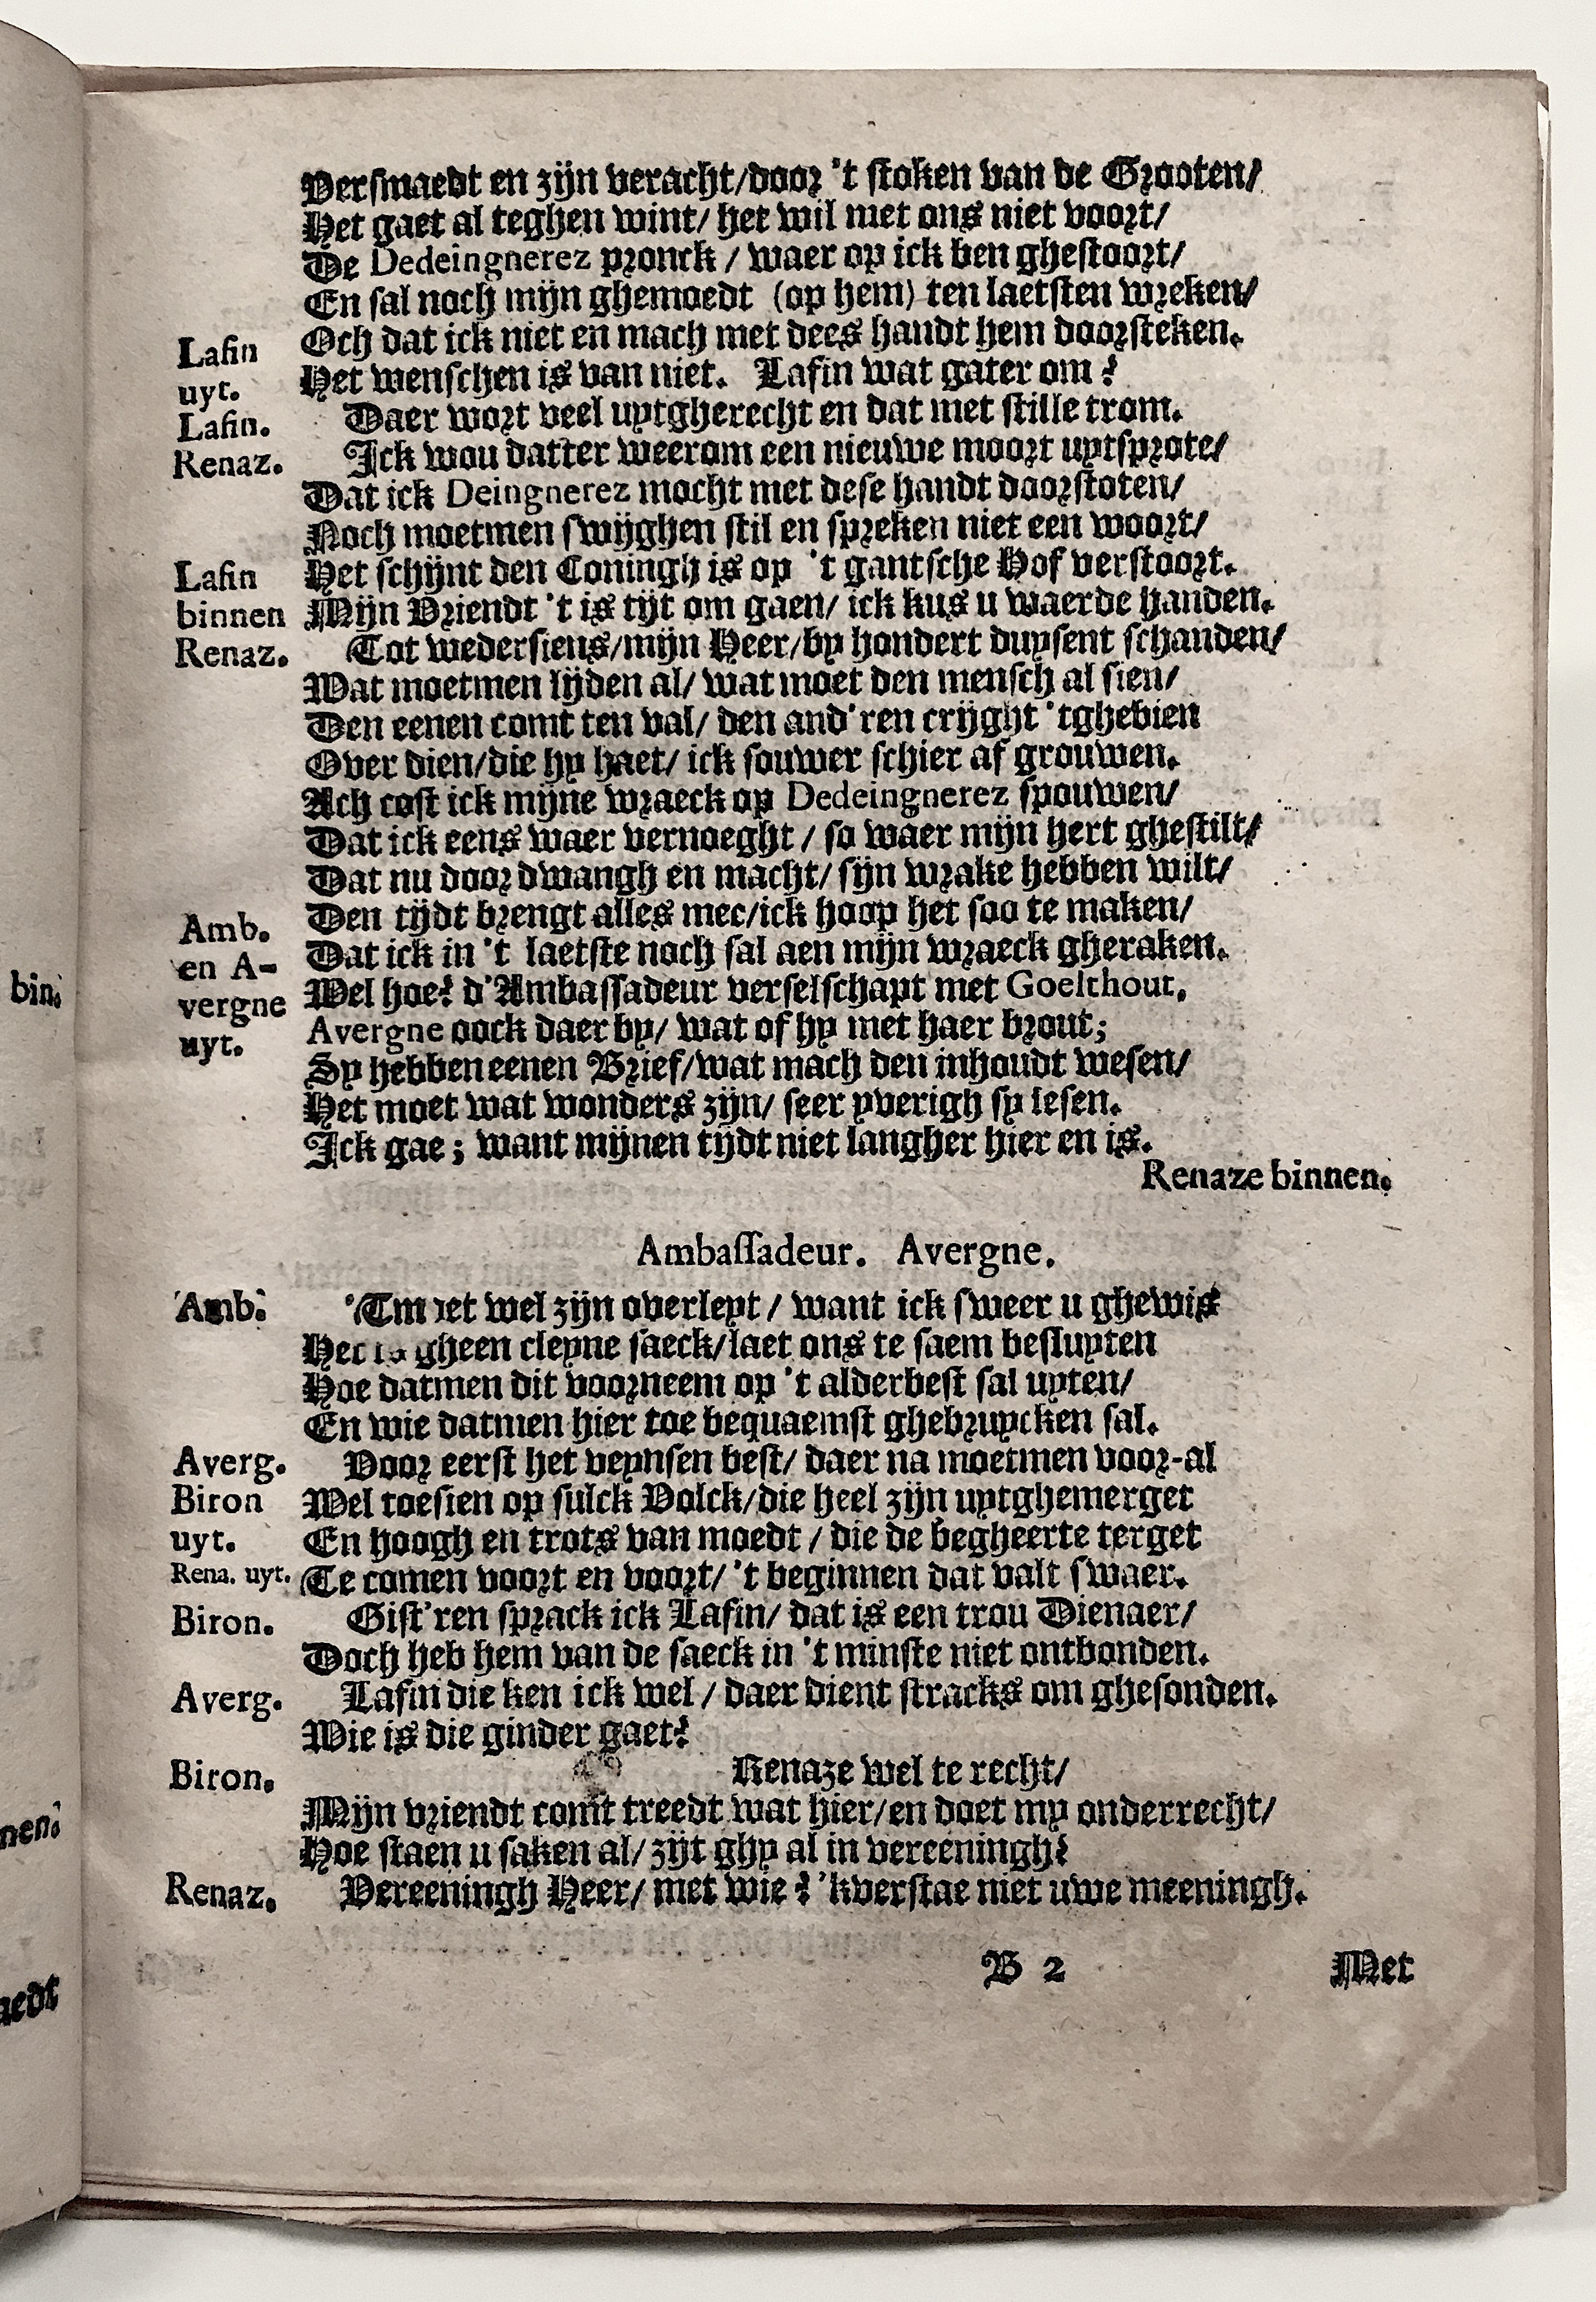 Versmaedt en zijn veracht/door 't stoken van de Grooten/
Het gaet al teghen wint/ het wil met ons niet voort/
De Dedeingnerez pronck / waer op ick ben ghestoort/
En sal noch mijn ghemoedt (op hem) ten laetsten wreken/
Lafin Och dat ick niet en mach met dees handt hem doorsteken.
uyt. Het wenschen is van niet. Lafin wat gater om?
Lafin. Daer wort veel uytgherecht en dat met stille trom.
Renaz. Ick wou datter weerom een nieuwe moort uytsprote/
Dat ick Deingnerez mocht met dese handt doorstoten/
Noch moetmen swijghen stil en spreken niet een woort/
Lafin Het schijnt den Coningh is op 't gantsche Hof verstoort.
binnen Mijn Vriendt 't is tijt om gaen/ ick kus u waerde handen.
Renaz. Tot wedersiens/mijn Heer/by hondert duysent schanden/
Wat moetmen lijden al/ wat moet den mensch al sien/
Den eenen comt ten val/ den and'ren crijght 'tghebien
Over dien/die hy haet/ ick souwer schier af grouwen.
Ach cost ick mijne wraeck op Dedeingnerez spouwen/
Dat ick eens waer vernoeght / so waer mijn hert ghestilt/
Dat nu door dwangh en macht/ sijn wrake hebben wilt/
Amb. Den tijdt brengt alles mee/ick hoop het soo te maken/
en A- Dat ick in 't laetste noch sal aen mijn wraeck gheraken.
bin. vergne Wel hoe? d'Ambassadeur verselschapt met Goelthout.
uyt. Avergne oock daer by/ wat of hy met haer brout;
Sy hebben eenen Brief/wat mach den inhoudt wesen/
Het moet wat wonders zijn/ seer yverigh sy lesen.
Ick gae; want mijnen tijdt niet langher hier en is.
Renaze binnen.
Ambassadeur. Avergne.
Amb. 'Tmoet wel zijn overleyt / want ick sweer u ghewis
Het is gheen cleyne saeck/laet ons te saem besluyten
Hoe datmen dit voorneem op 't alderbest sal uyten/
En wie datmen hier toe bequaemst ghebruycken sal.
Averg. Voor eerst het veynsen best/ daer na moetmen voor-al
Biron Wel toesien op sulck Volck/die heel zijn uytghemerget
uyt. En hoogh en trots van moedt / die de begheerte terget
Rena. uyt. Te comen voort en voort/ 't beginnen dat valt swaer.
Biron. Gist'ren sprack ick Lafin/ dat is een trou Dienaer/
Doch heb hem van de saeck in 't minste niet ontbonden.
Averg. Lafin die ken ick wel / daer dient stracks om ghesonden.
Wie is die ginder gaet?
Biron. Renaze wel te recht/
nen. Mijn vriendt comt treedt wat hier/en doet my onderrecht/
Hoe staen u saken al/ zijt ghy al in vereeningh?
Renaz. Vereeningh Heer/ met wie? 'kverstae niet uwe meeningh.
aedt B 2 Met